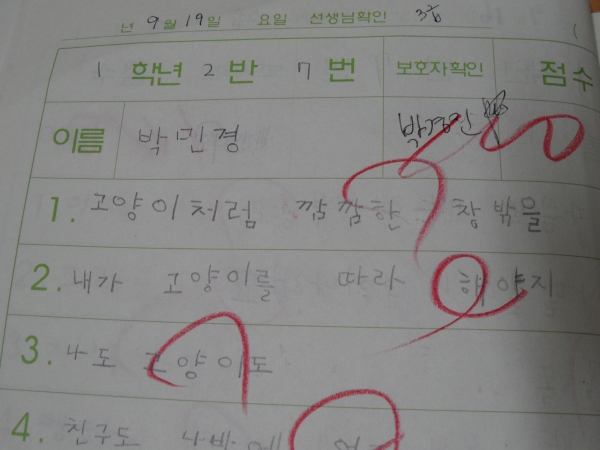 년 9월 19일 요일 선생님확인
1 학년 2 반 7 번 보호자확인 점수
이름 박민경
1. 고양이처럼 깜깜한 창 밖을
2. 내가 고양이를 따라 해야지
3. 나도 고양이도
4. 친구도 나바에